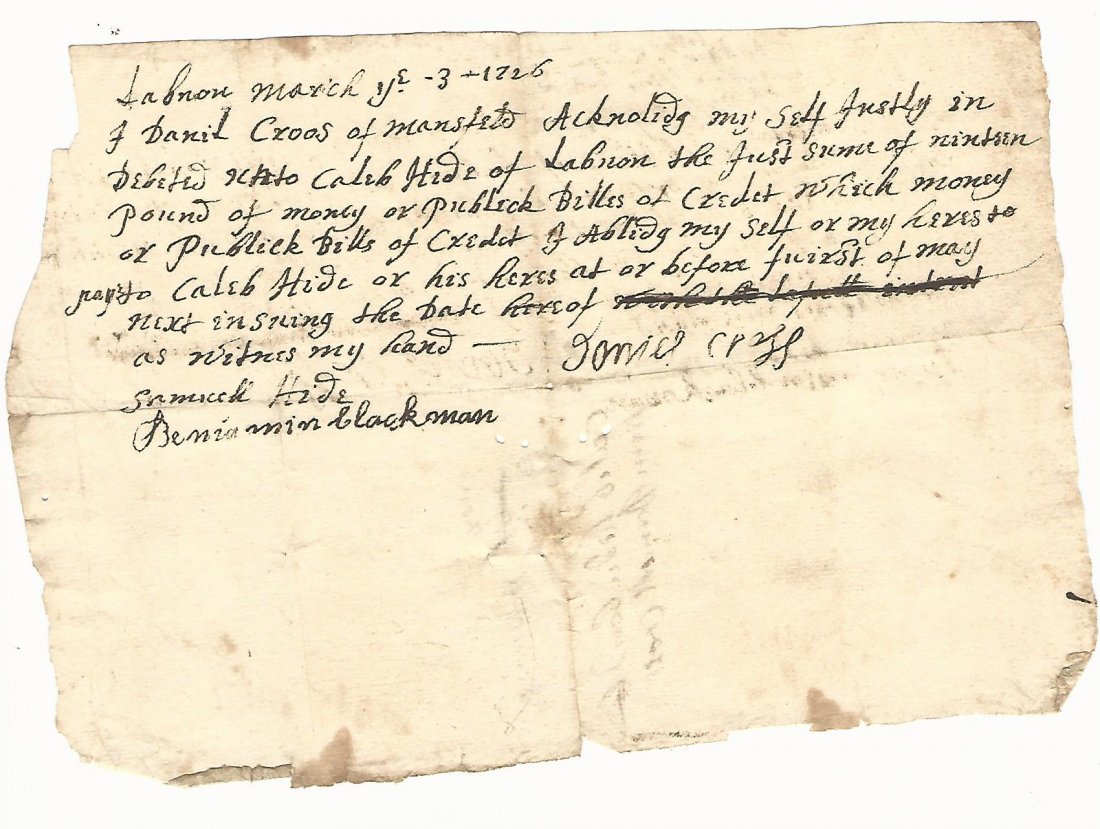 Labnon march ye - 3 - 1726
J Danil Croos of mansfeld Acknolidg my Self Justly in
Debeted unto Caleb Hide of Labnon the Just sume of ninteen
pound of money or Publeck Billes of Credet which money
or Publeck Bills of Credet J Ablidg my Self or my heres to
pay to Caleb Hide or his heres at or before fuirst of may
next insuing the Date hereof
as witnes my hand — Daniel
Samuell Hide
Beniamin blackman